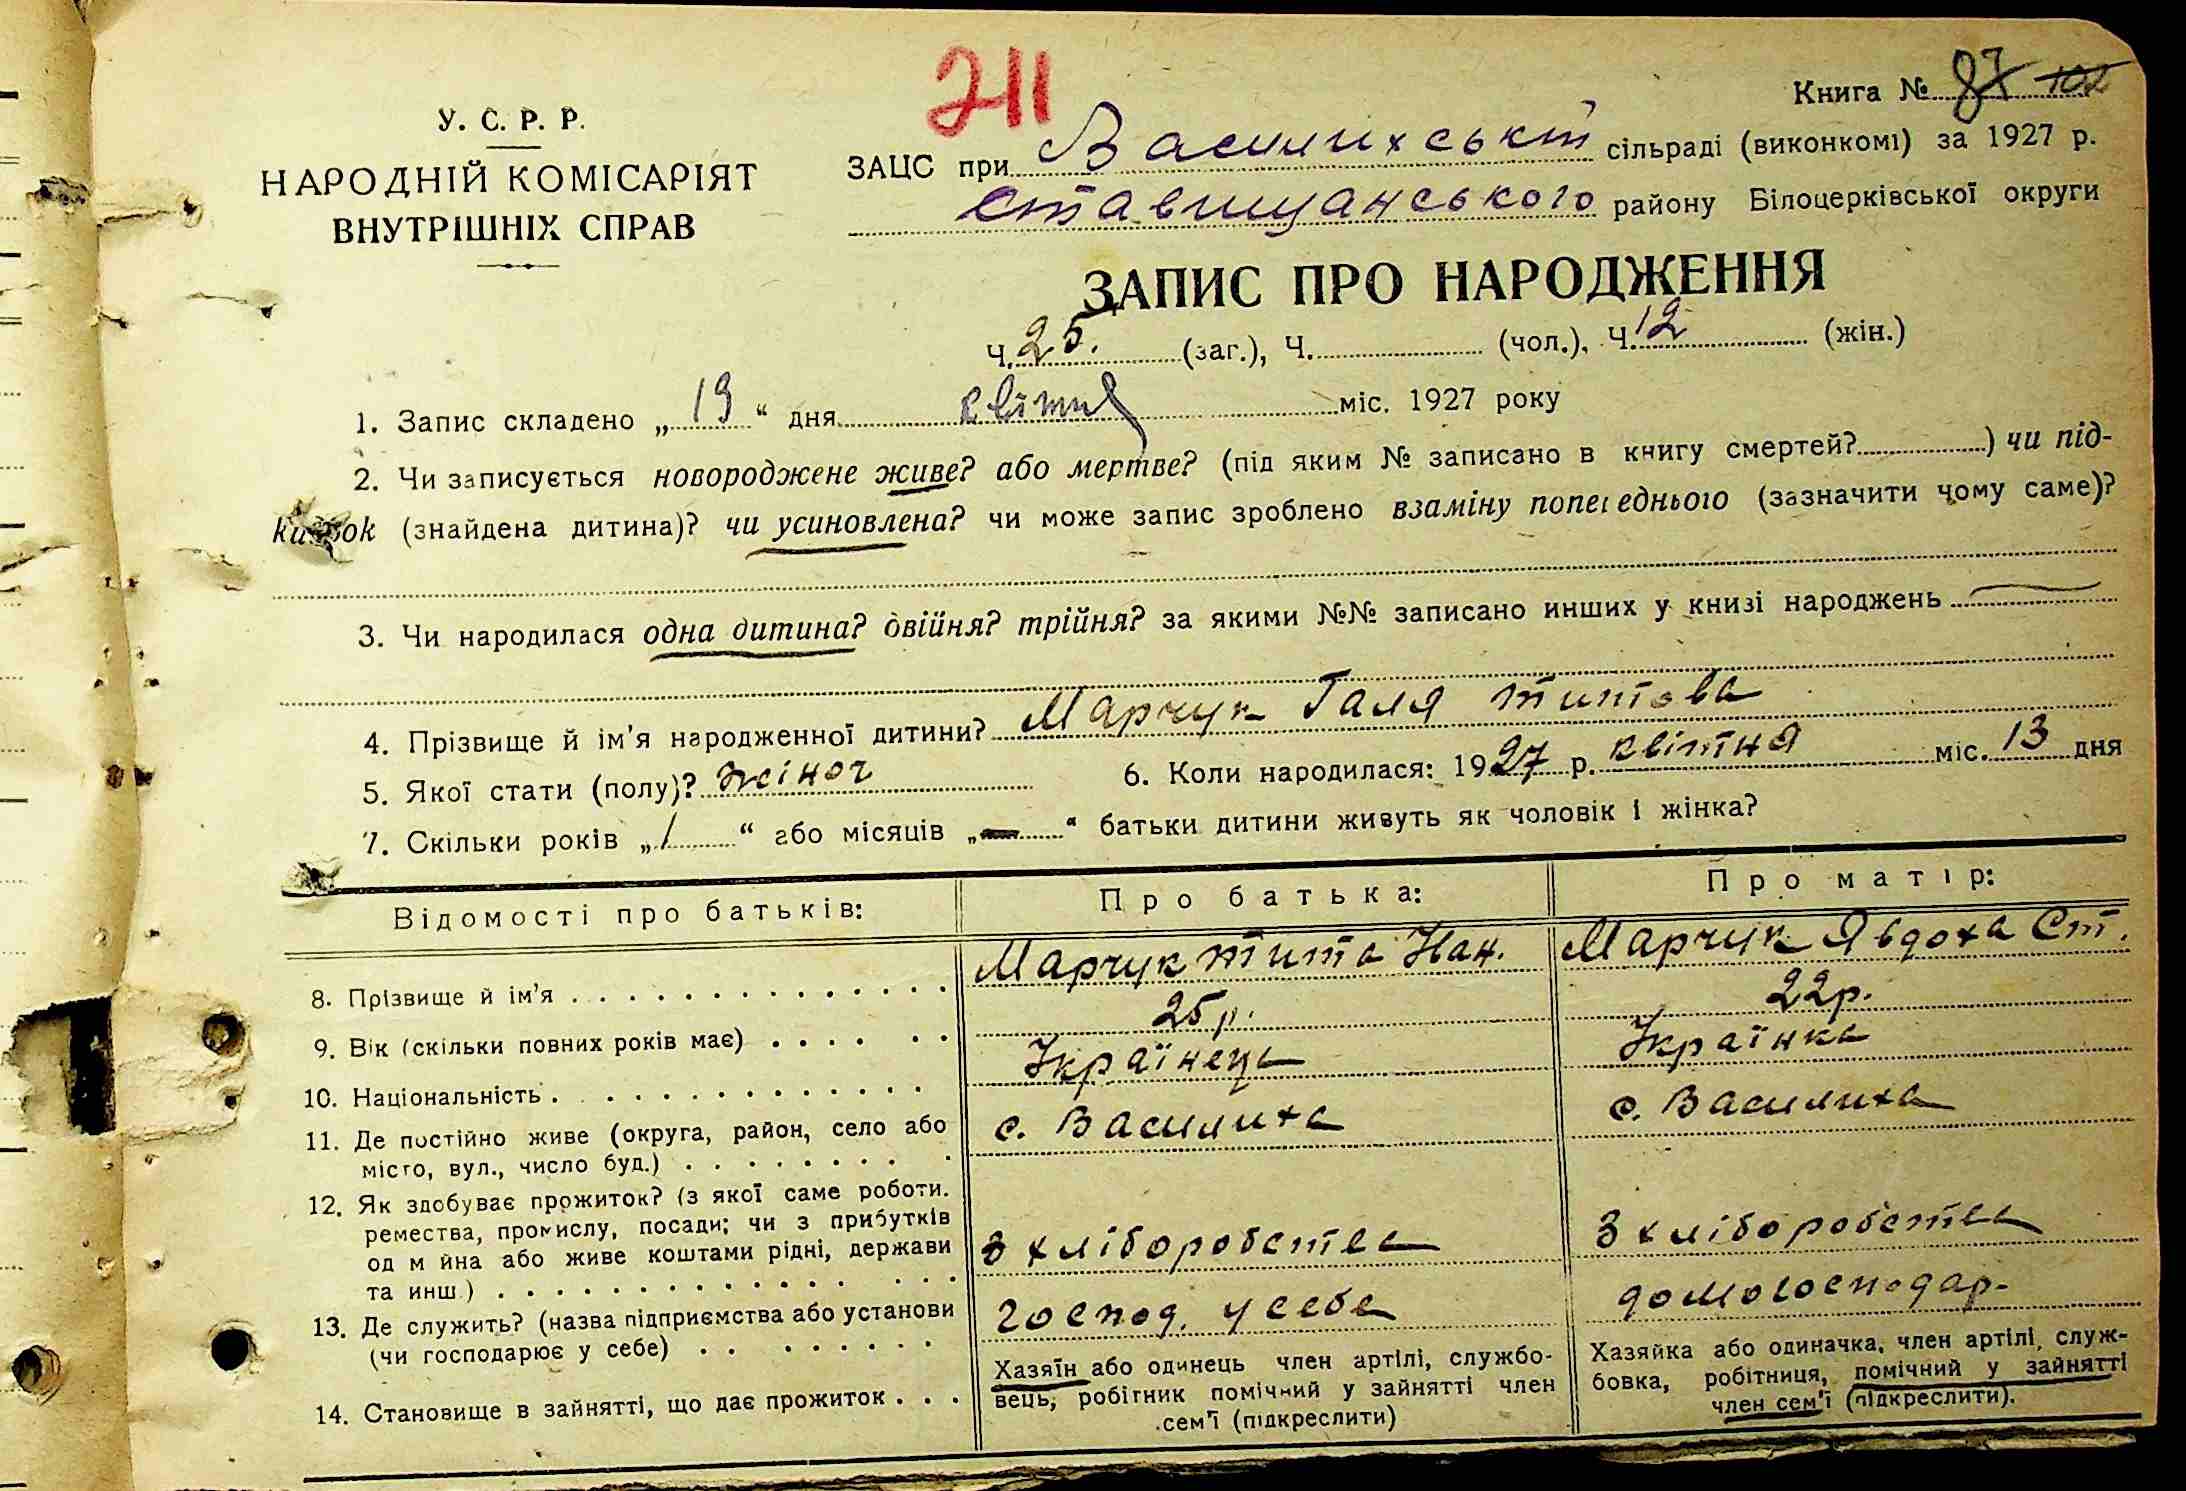 211
Книга № 87 102
У. С. Р. Р.
НАРОДНІЙ КОМІСАРІЯТ
ВНУТРІШНІХ СПРАВ
ЗАЦС при Василихській сільраді (виконкомі) за 1927 р.
Ставищанського району Білоцерківської округи
ЗАПИС ПРО НАРОДЖЕННЯ
Ч. 25. (заг.), Ч. (чол.), Ч. 12 (жін.)
1. Запис складено „ 19 “ дня квітня міс. 1927 року
2. Чи записується новороджене живе? або мертве? (під яким № записано в книгу смертей? ) чи під-
кидьок (знайдена дитина)? чи усиновлена? чи може запис зроблено взаміну попереднього (зазначити чому саме)?
3. Чи народилася одна дитина? двійня? трійня? за якими №№ записано инших у книзі народжень
4. Прізвище й ім’я народженної дитини? Марчук Галя Титова
5. Якої стати (полу)? жіноч 6. Коли народилася: 1927 р. квітня міс. 13 дня
7. Скільки років „ 1 “ або місяців „ — “ батьки дитини живуть як чоловік і жінка?
Відомості про батьків: Про батька: Про матір:
8. Прізвище й ім’я Марчук Тита Нан. Марчук Явдоха Ст.
9. Вік (скільки повних років має) 25 р. 22 р.
10. Національність Українець Українка
11. Де постійно живе (округа, район, село або с. Василиха с. Василиха
місто, вул., число буд.)
12. Як здобуває прожиток? (з якої саме роботи.
ремества, промислу, посади; чи з прибутків
од майна або живе коштами рідні, держави З хліборобства З хліборобства
та инш.)
13. Де служить? (назва підприємства або установи господ. у себе домогосподар.
(чи господарює у себе)
14. Становище в зайнятті, що дає прожиток
Хазяїн або одинець член артілі, службо-
вець, робітник помічний у зайнятті член
сем’ї (підкреслити)
Хазяйка або одиначка, член артілі, служ-
бовка, робітниця, помічний у зайнятті
член сем’ї (підкреслити).